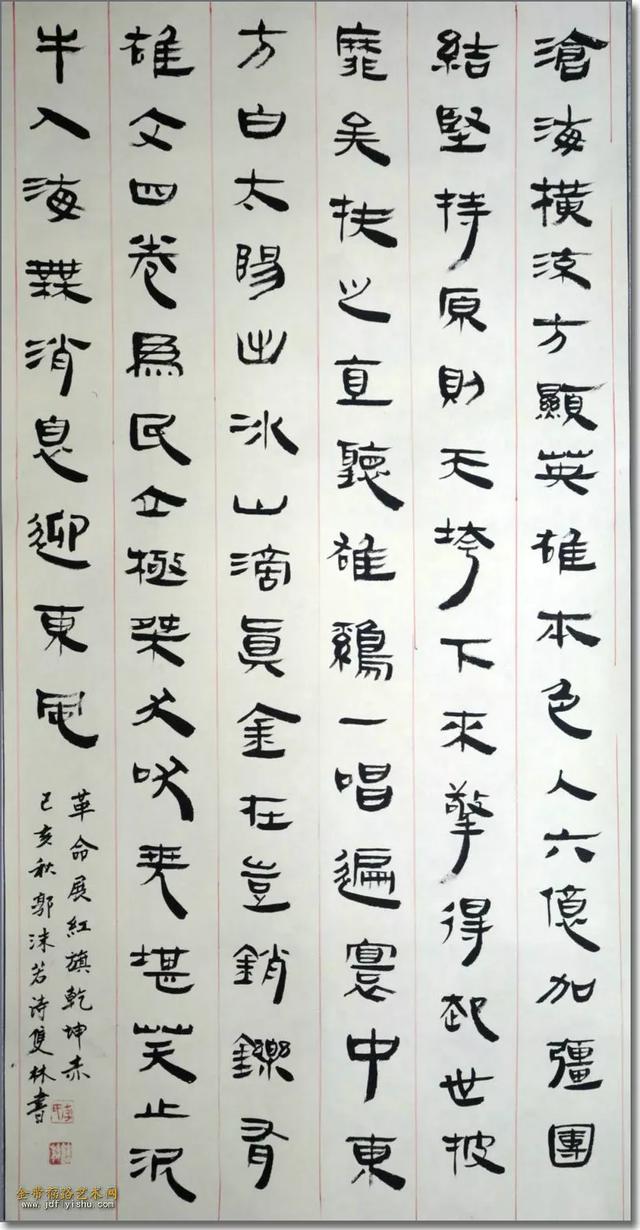 滄海橫流方顯英雄本色人六億加彊團
結堅持原則天垮下來擎得起世披
靡矣扶之直聽雄鷄一唱遍寰中東
方白太陽出冰山滴眞金在豈銷鑠有
雄文四卷爲民立極桀犬吠堯堪笑止泥
牛入海無消息迎東風
革命展紅旗乾坤赤
己亥秋郭沫若诗雙林書
金带福路艺术网
www.jdf-yishu.com